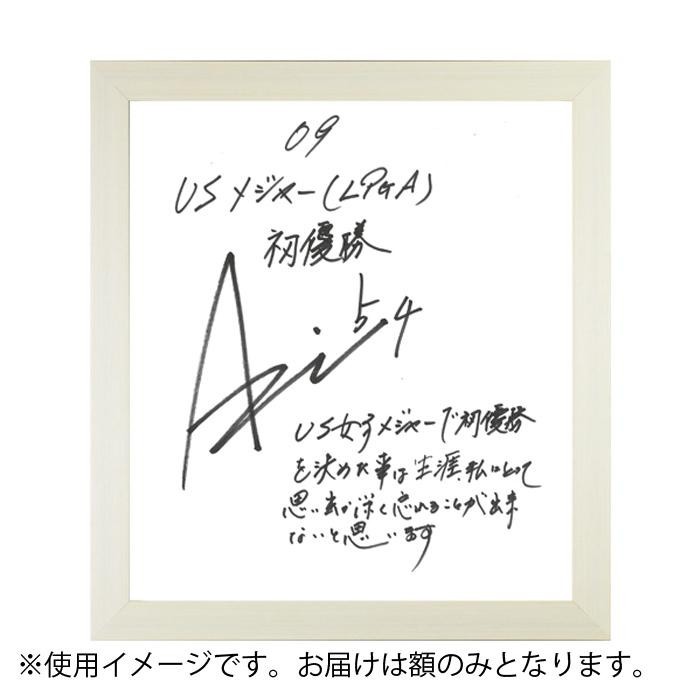 09
USメジャー(LPGA)
初優勝
Ai 54
US女子メジャーで初優勝
を決めた事は生涯、私にとって
思い出深く忘れることが出来
ないと思います
※使用イメージです。お届けは額のみとなります。